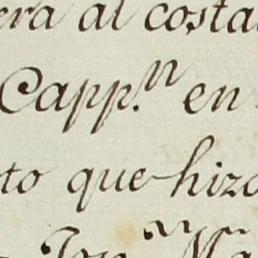 era al costa
Capp.n en
to que hizo